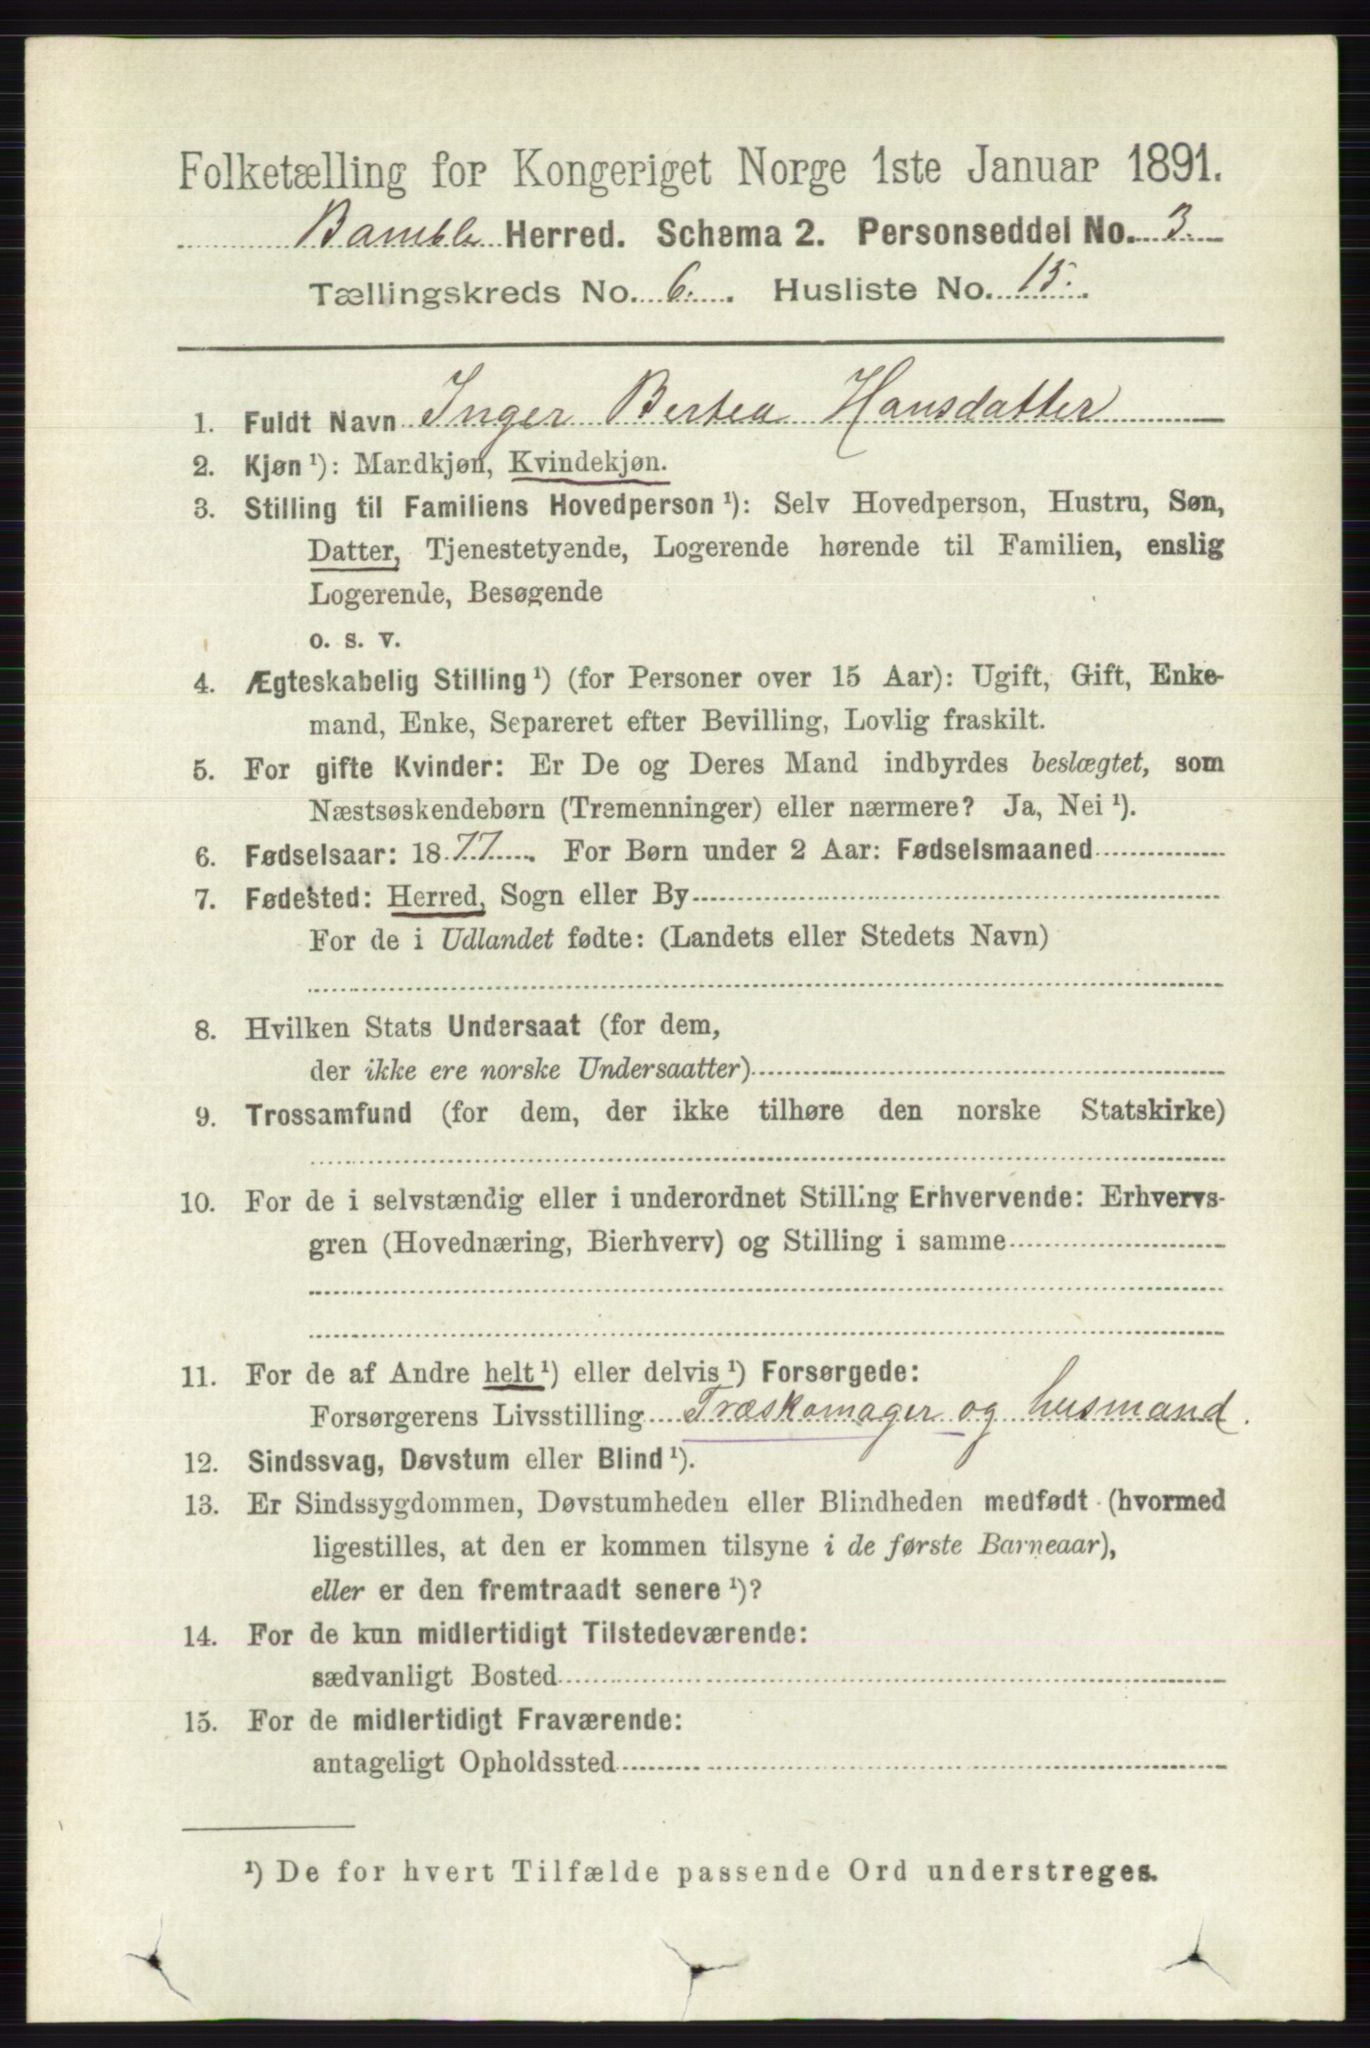 Folketælling for Kongeriget Norge 1ste Januar 1891.
Bamble Herred. Schema 2. Personseddel No. 3.
Tællingskreds No. 6. Husliste No. 15.
1. Fuldt Navn Inger Bertea Hansdatter
2. Kjøn¹): Mandkjøn, Kvindekjøn.
3. Stilling til Familiens Hovedperson¹): Selv Hovedperson, Hustru, Søn,
Datter, Tjenestetyende, Logerende hørende til Familien, enslig
Logerende, Besøgende
o. s. v.
4. Ægteskabelig Stilling¹) (for Personer over 15 Aar): Ugift, Gift, Enke-
mand, Enke, Separeret efter Bevilling, Lovlig fraskilt.
5. For gifte Kvinder: Er De og Deres Mand indbyrdes beslægtet, som
Næstsøskendebørn (Tremenninger) eller nærmere? Ja, Nei¹).
6. Fødselsaar: 1877. For Børn under 2 Aar: Fødselsmaaned
7. Fødested: Herred, Sogn eller By
For de i Udlandet fødte: (Landets eller Stedets Navn)
8. Hvilken Stats Undersaat (for dem,
der ikke ere norske Undersaatter)
9. Trossamfund (for dem, der ikke tilhøre den norske Statskirke)
10. For de i selvstændig eller i underordnet Stilling Erhvervende: Erhvervs-
gren (Hovednæring, Bierhverv) og Stilling i samme
11. For de af Andre helt¹) eller delvis¹) Forsørgede:
Forsørgerens Livsstilling Træskomager og husmand.
12. Sindssvag, Døvstum eller Blind¹).
13. Er Sindssygdommen, Døvstumheden eller Blindheden medfødt (hvormed
ligestilles, at den er kommen tilsyne i de første Barneaar),
eller er den fremtraadt senere¹)?
14. For de kun midlertidigt Tilstedeværende:
sædvanligt Bosted
15. For de midlertidigt Fraværende:
antageligt Opholdssted
¹) De for hvert Tilfælde passende Ord understreges.